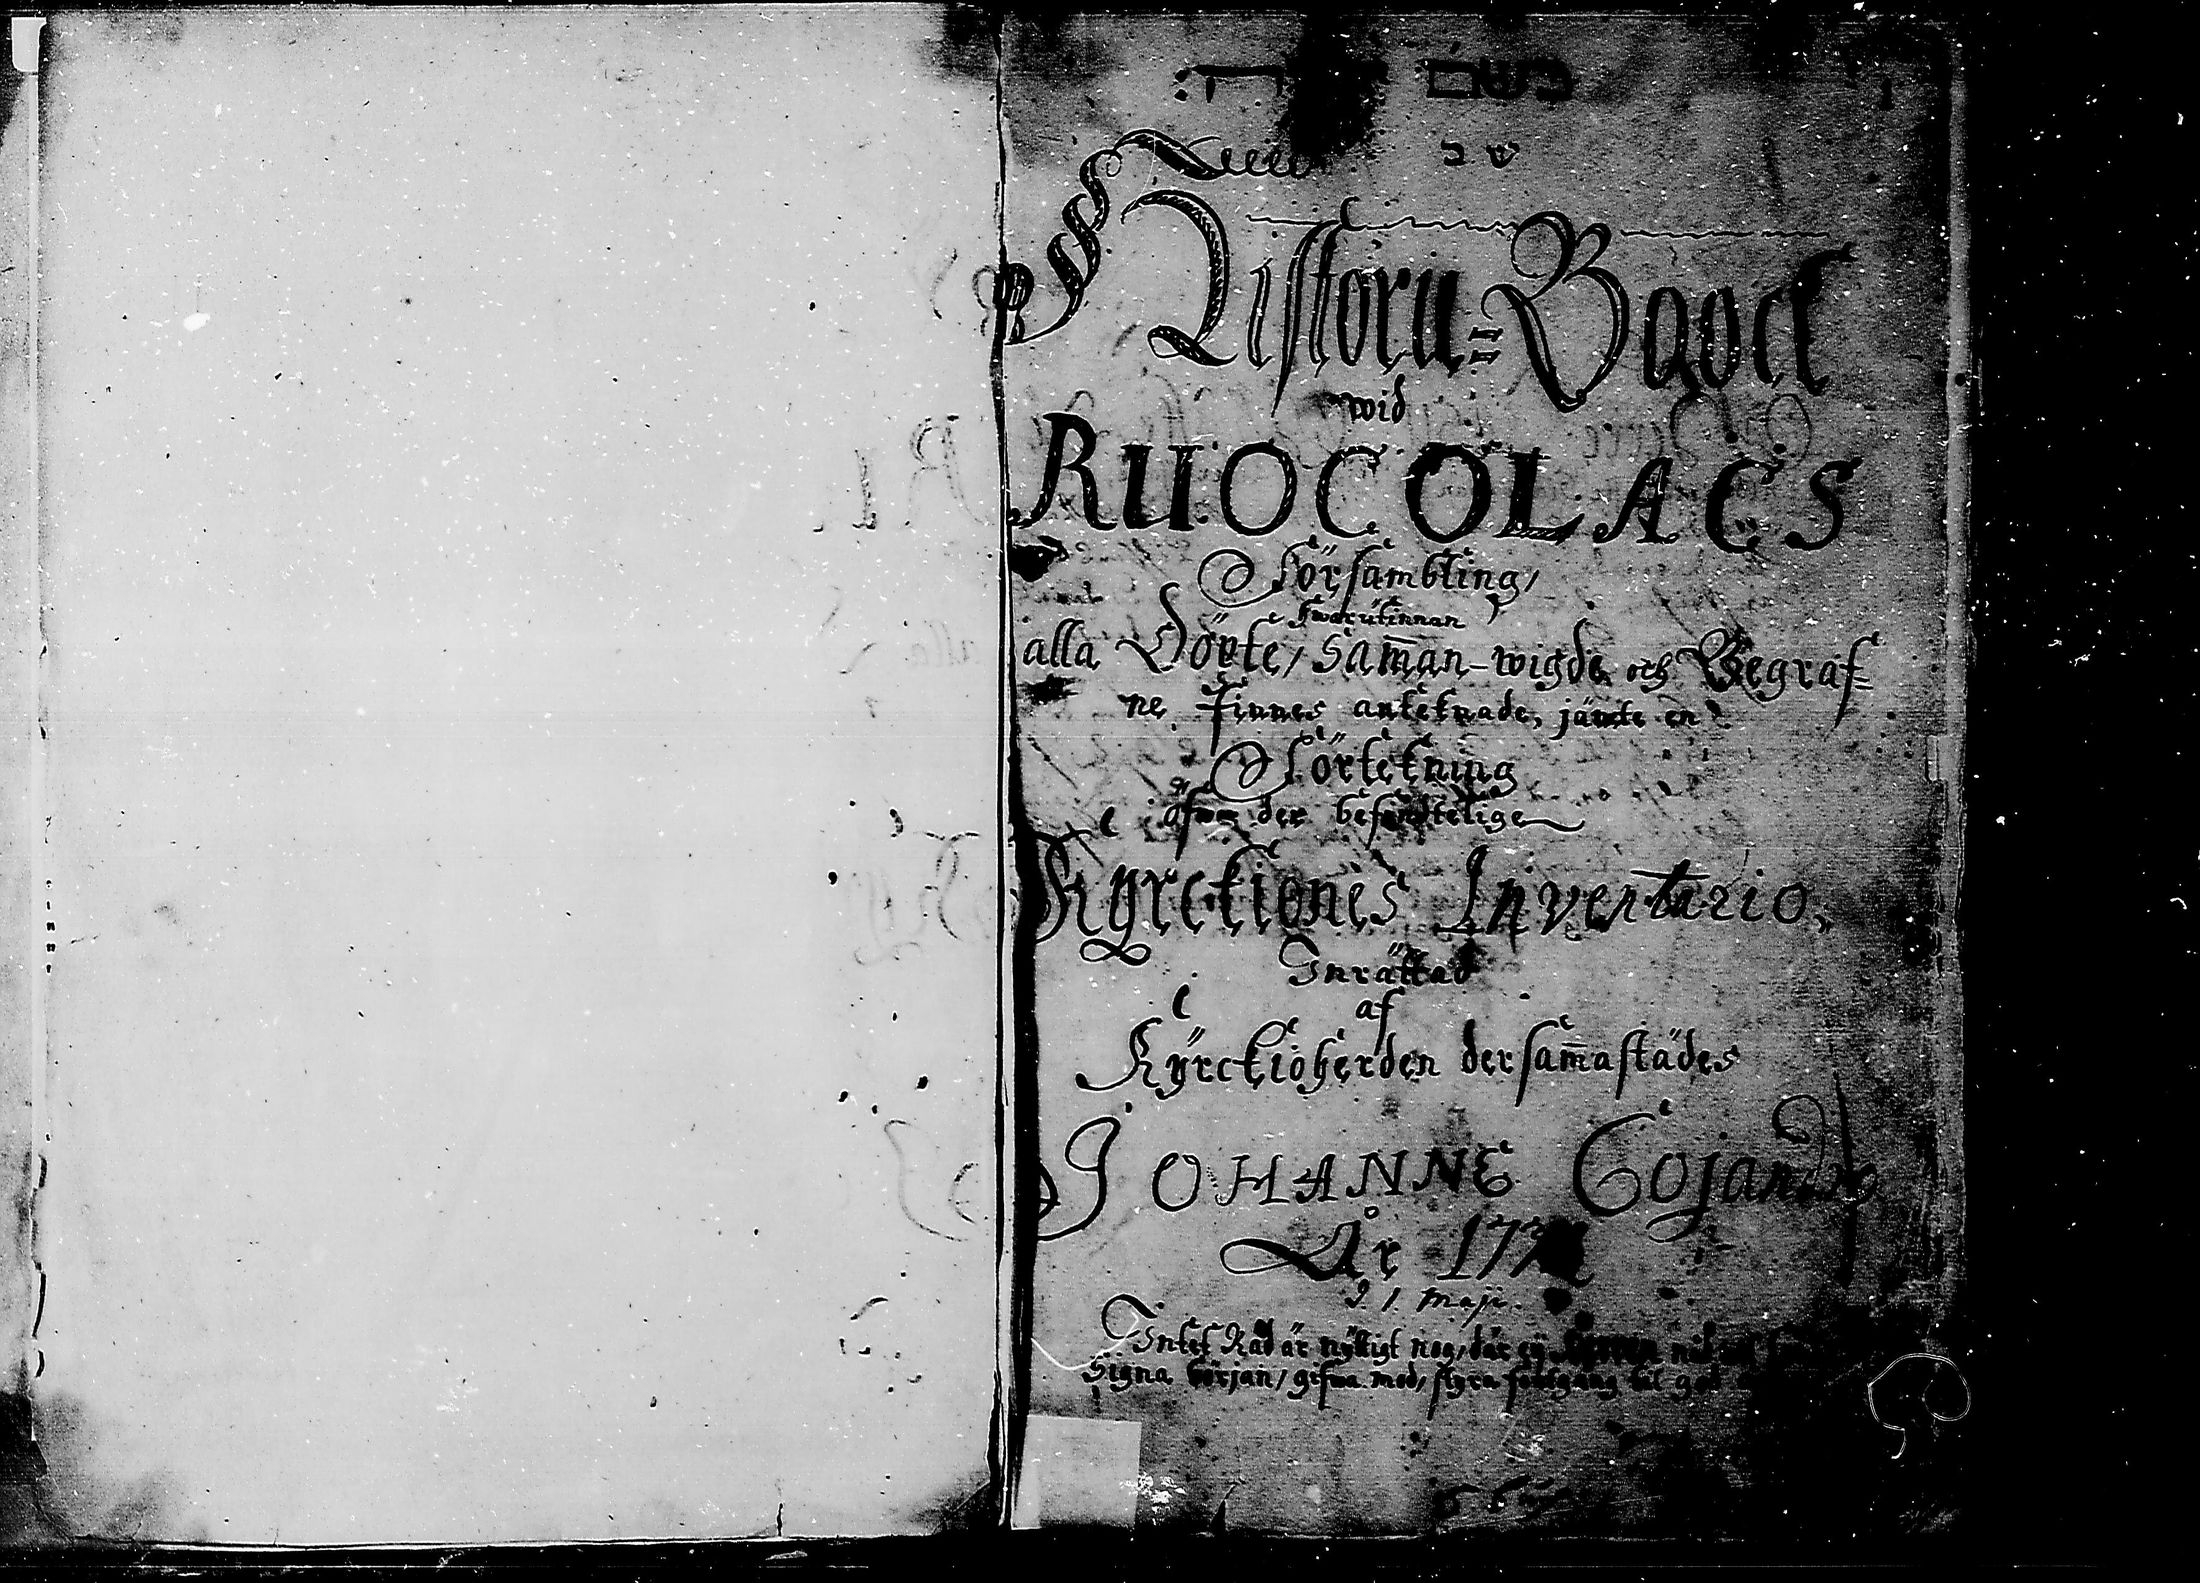 בשם
Historu=Boock
wid
RUOCOLACS
Försambling,
hwarutinnan
alla Döpte, Sam̄an-wigde och Begraf=
ne finnes anteknade, jämte en
Förtekning
öfwer der befindtelige
Kyrckiones Inventario,
Inrättad
af
Kÿrckioherden dersam̄astädes
JOHANNE Cojandro
År 177
d. 1. Maji.
Intet Råd är nÿttigt nog, där eÿ
Signa början, gifwa mod, styra fortgang til god